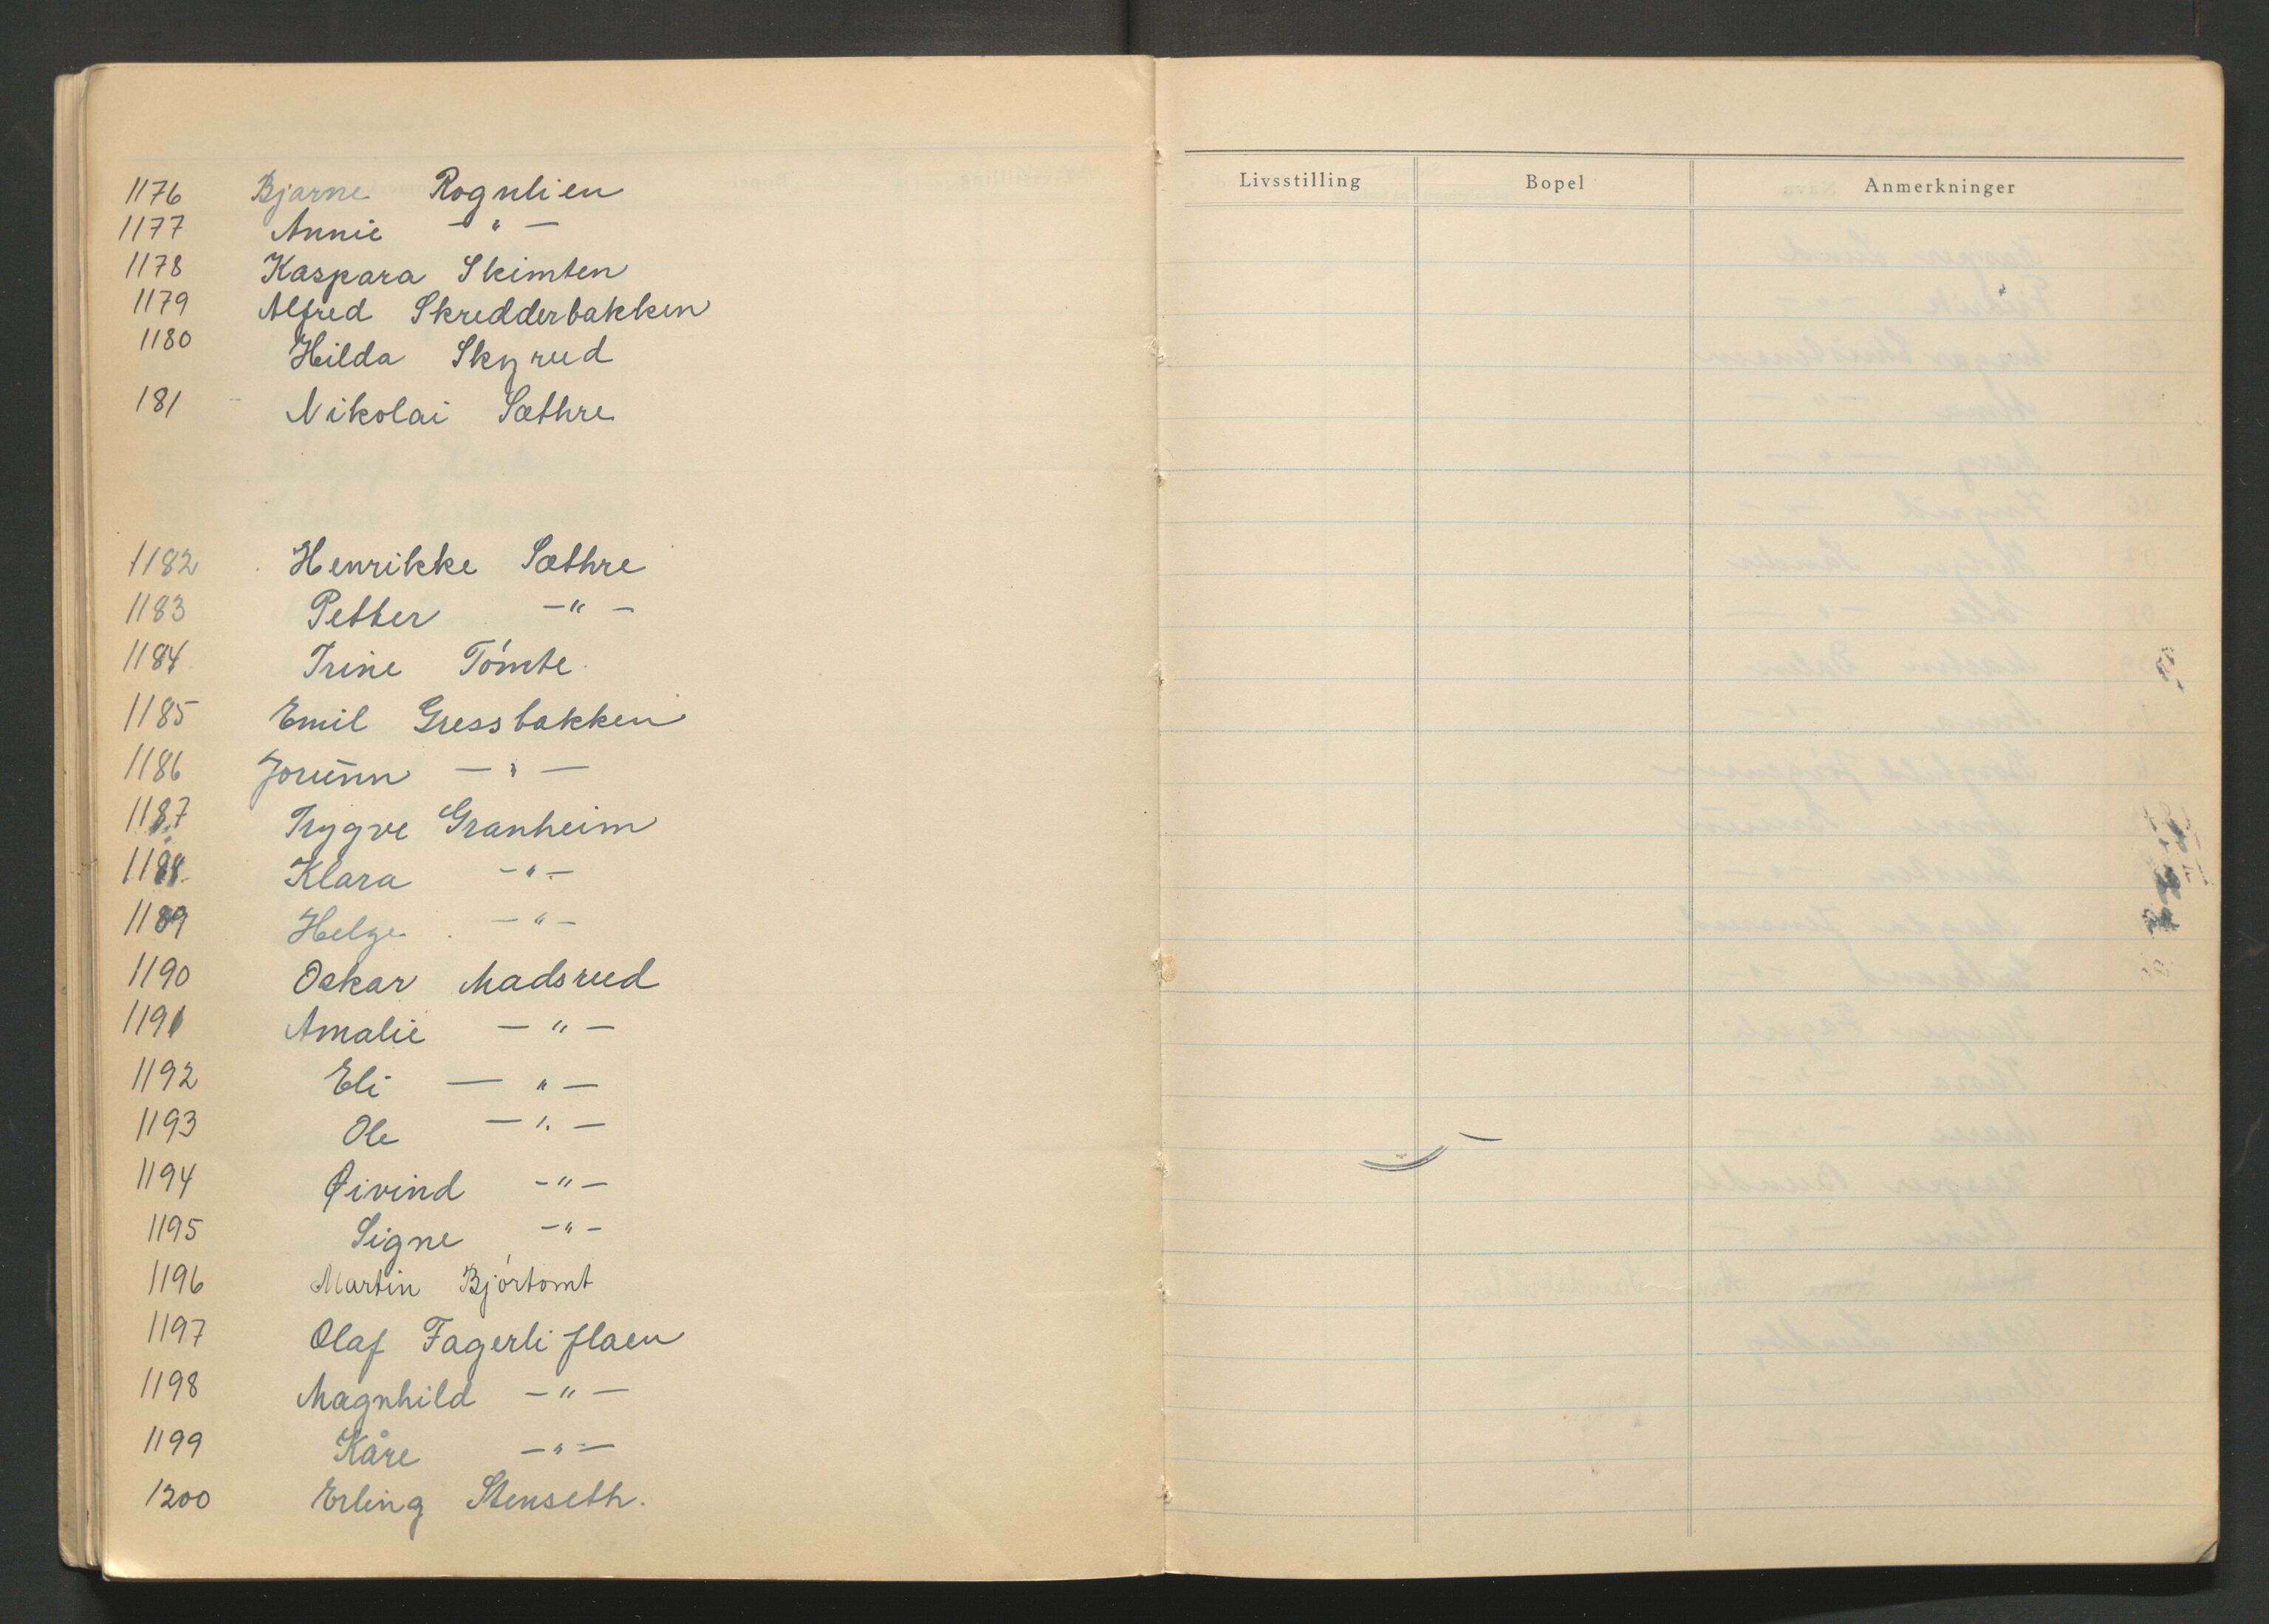 1176 Bjarne Rognlien
1177 Annie — " —
1178 Kaspara Skimten
1179 Alfred Skredderbakken
1180 Hilda Skyrud
181 Nikolai Sæthre
1182 Henrikke Sæthre
1183 Petter — " —
1184 Trine Tómte
1185 Emil Gressbakken
1186 Jorunn — " —
1187 Trygve Granheim
1188 Klara — " —
1189 Helge — " —
1190 Oskar Madsrud
1191 Amalie — " —
1192 Eli — " —
1193 Ole — " —
1194 Øivind — " —
1195 Signe — " —
1196 Martin Bjórtomt
1197 Olaf Fagerliflaen
1198 Magnhild — " —
1199 Kåre — " —
1200 Erling Stenseth.
Livsstilling Bopel Anmerkninger